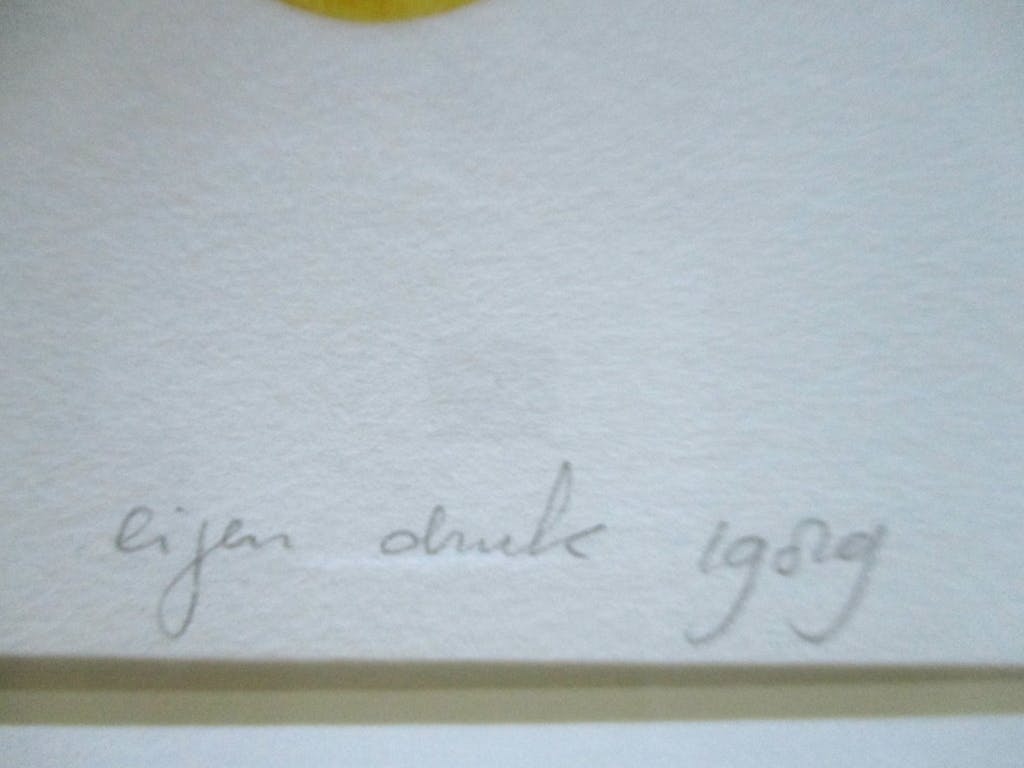 eigen druk 1989